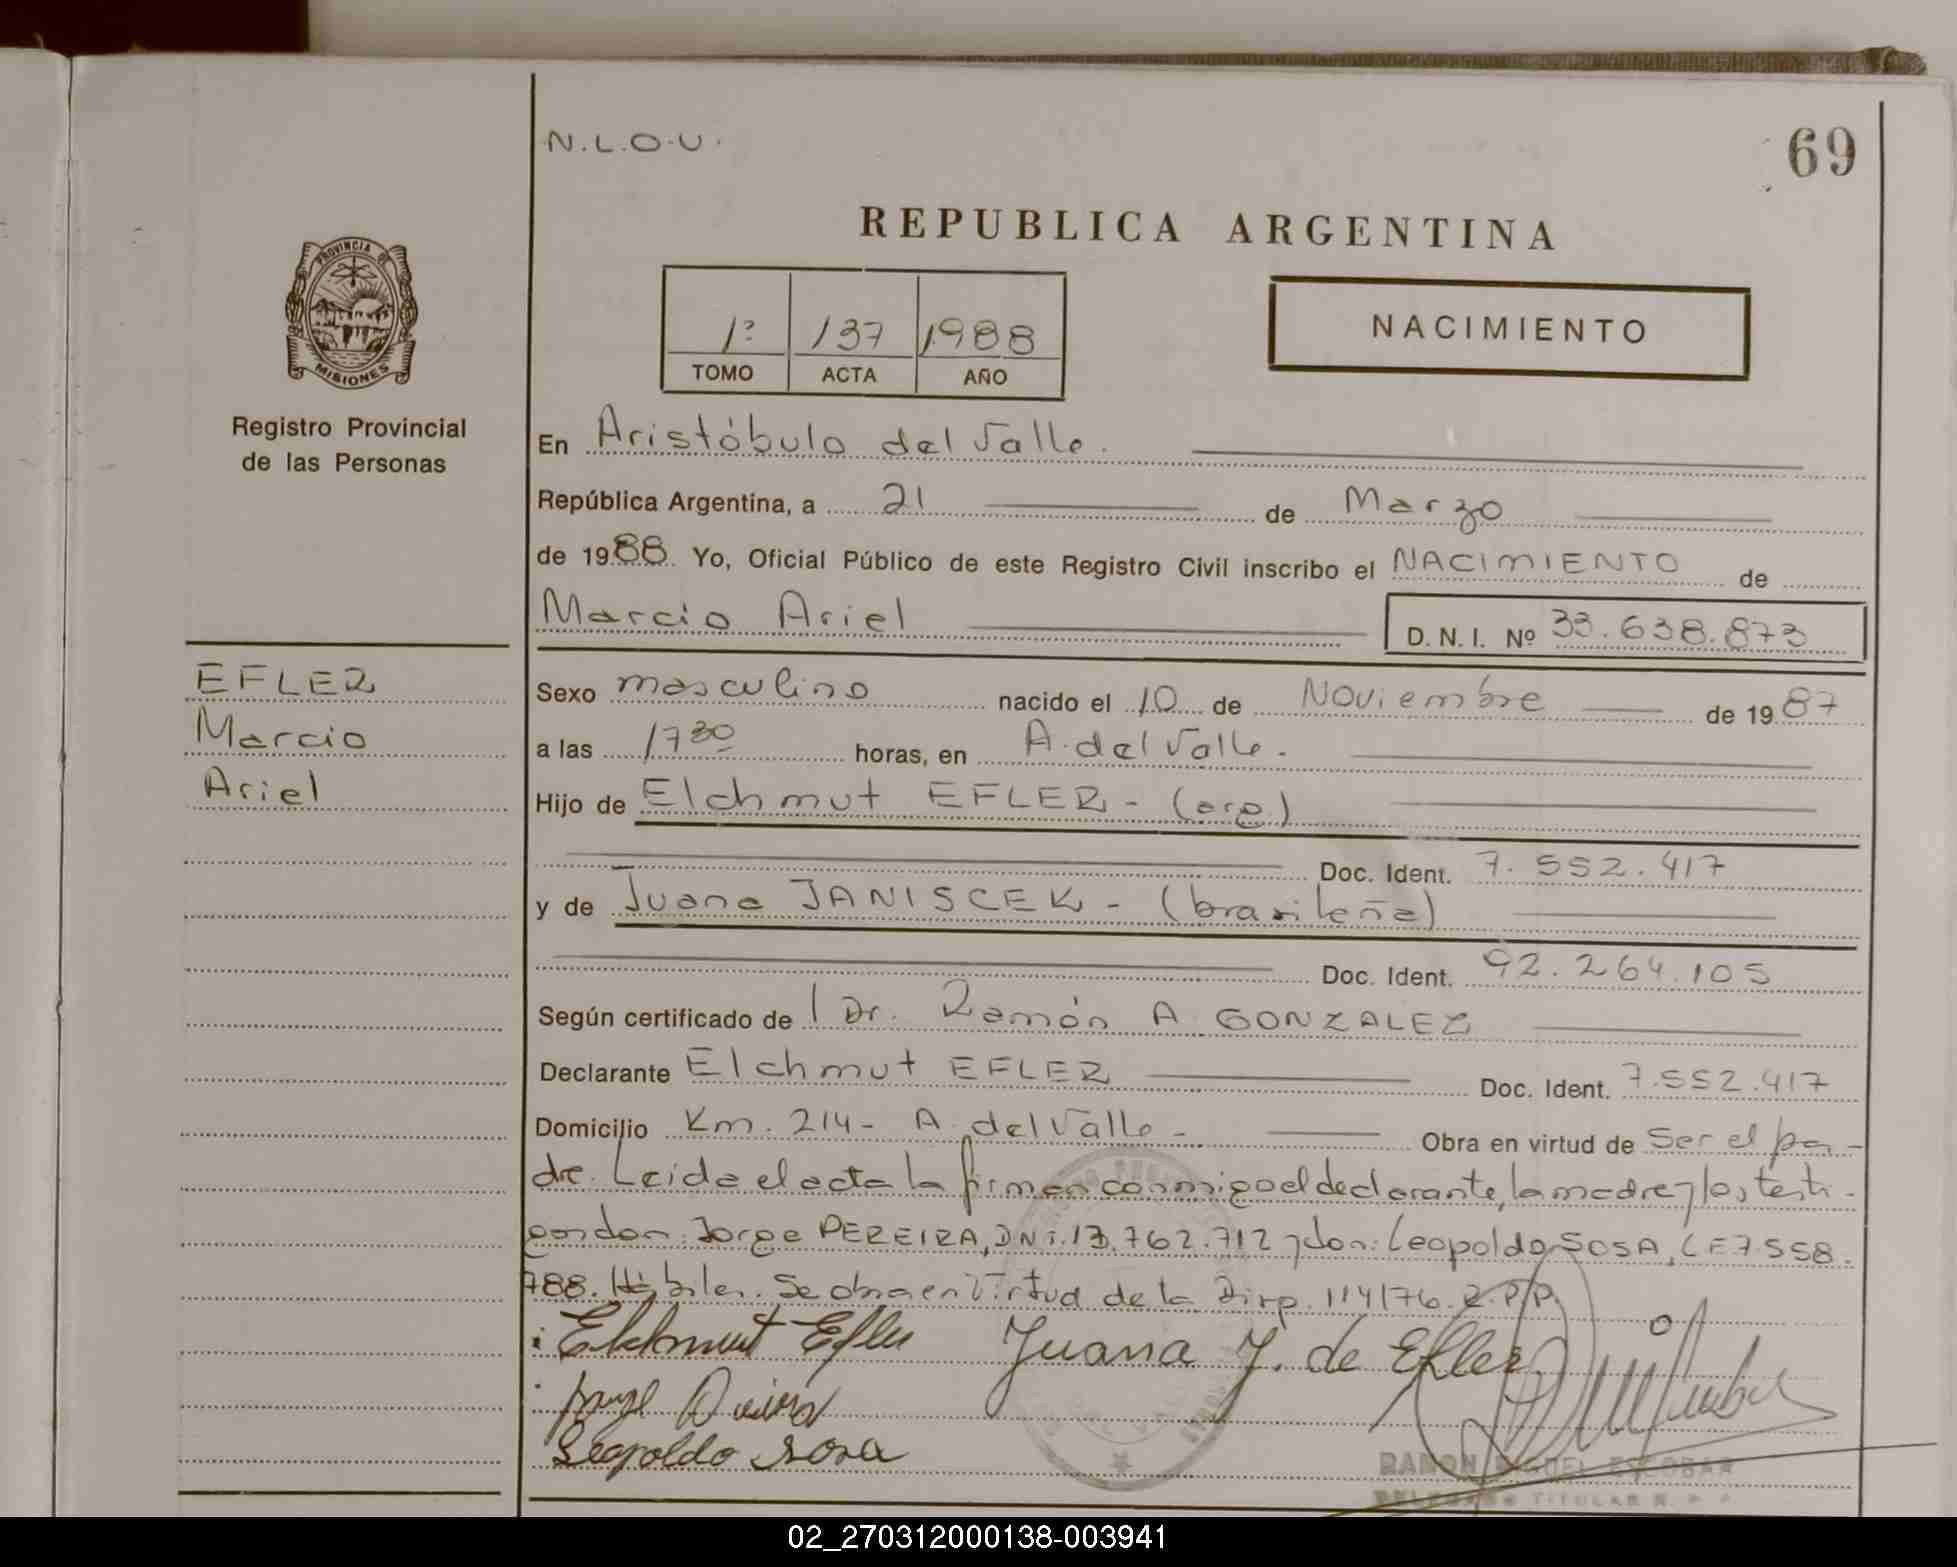 N.L.O.U.
69
REPUBLICA ARGENTINA
PROVINCIA DE
MISIONES
Registro Provincial
de las Personas
1º 137 1988
TOMO ACTA AÑO
NACIMIENTO
En Aristóbulo del Valle.
República Argentina, a 21 de Marzo
de 1988 Yo, Oficial Público de este Registro Civil inscribo el NACIMIENTO de
Marcio Ariel D.N.I. Nº 33.638.873
EFLER
Marcio
Ariel
Sexo masculino nacido el 10 de Noviembre de 1987
a las 17 30 horas, en A. del Valle.
Hijo de Elchmut EFLER - (arg.)
Doc. Ident. 7.552.417
y de Juana JANISCEK - (brasileña)
Doc. Ident. 92.264.105
Según certificado de l Dr. Ramón A GONZALEZ
Declarante Elchmut EFLER Doc. Ident. 7.552.417
Domicilio Km. 214 - A. del Valle - Obra en virtud de Ser el pa-
dre. Leida el acta la firman conmigo el declarante, la madre y los testi-
gos don: Jorge PEREIRA, DNi. 13.762.712 y don: Leopoldo SOSA, LE 7.558.
788. Hábiles. Se obra en Virtud de la Disp. 114/76. R.P.P.
Elchmut Efler Juana J. de Efler
Leopoldo Sosa
RAMON MIGUEL ESCOBAR
DELEGADO TITULAR R. P. P.
02_270312000138-003941